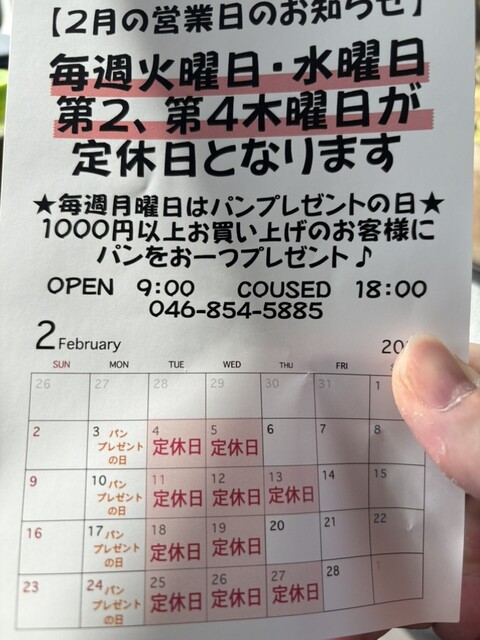 【2月の営業日のお知らせ】
毎週火曜日・水曜日
第2、第4木曜日が
定休日となります
★毎週月曜日はパンプレゼントの日★
1000円以上お買い上げのお客様に
パンをお一つプレゼント♪
OPEN 9:00 COUSED 18:00
046-854-5885
2 February 20
SUN MON TUE WED THU FRI
26 27 28 29 30 31 1
2 3 パンプレゼントの日 4 定休日 5 定休日 6 7 8
9 10 パンプレゼントの日 11 定休日 12 定休日 13 定休日 14 15
16 17 パンプレゼントの日 18 定休日 19 定休日 20 21 22
23 24 パンプレゼントの日 25 定休日 26 定休日 27 定休日 28 1